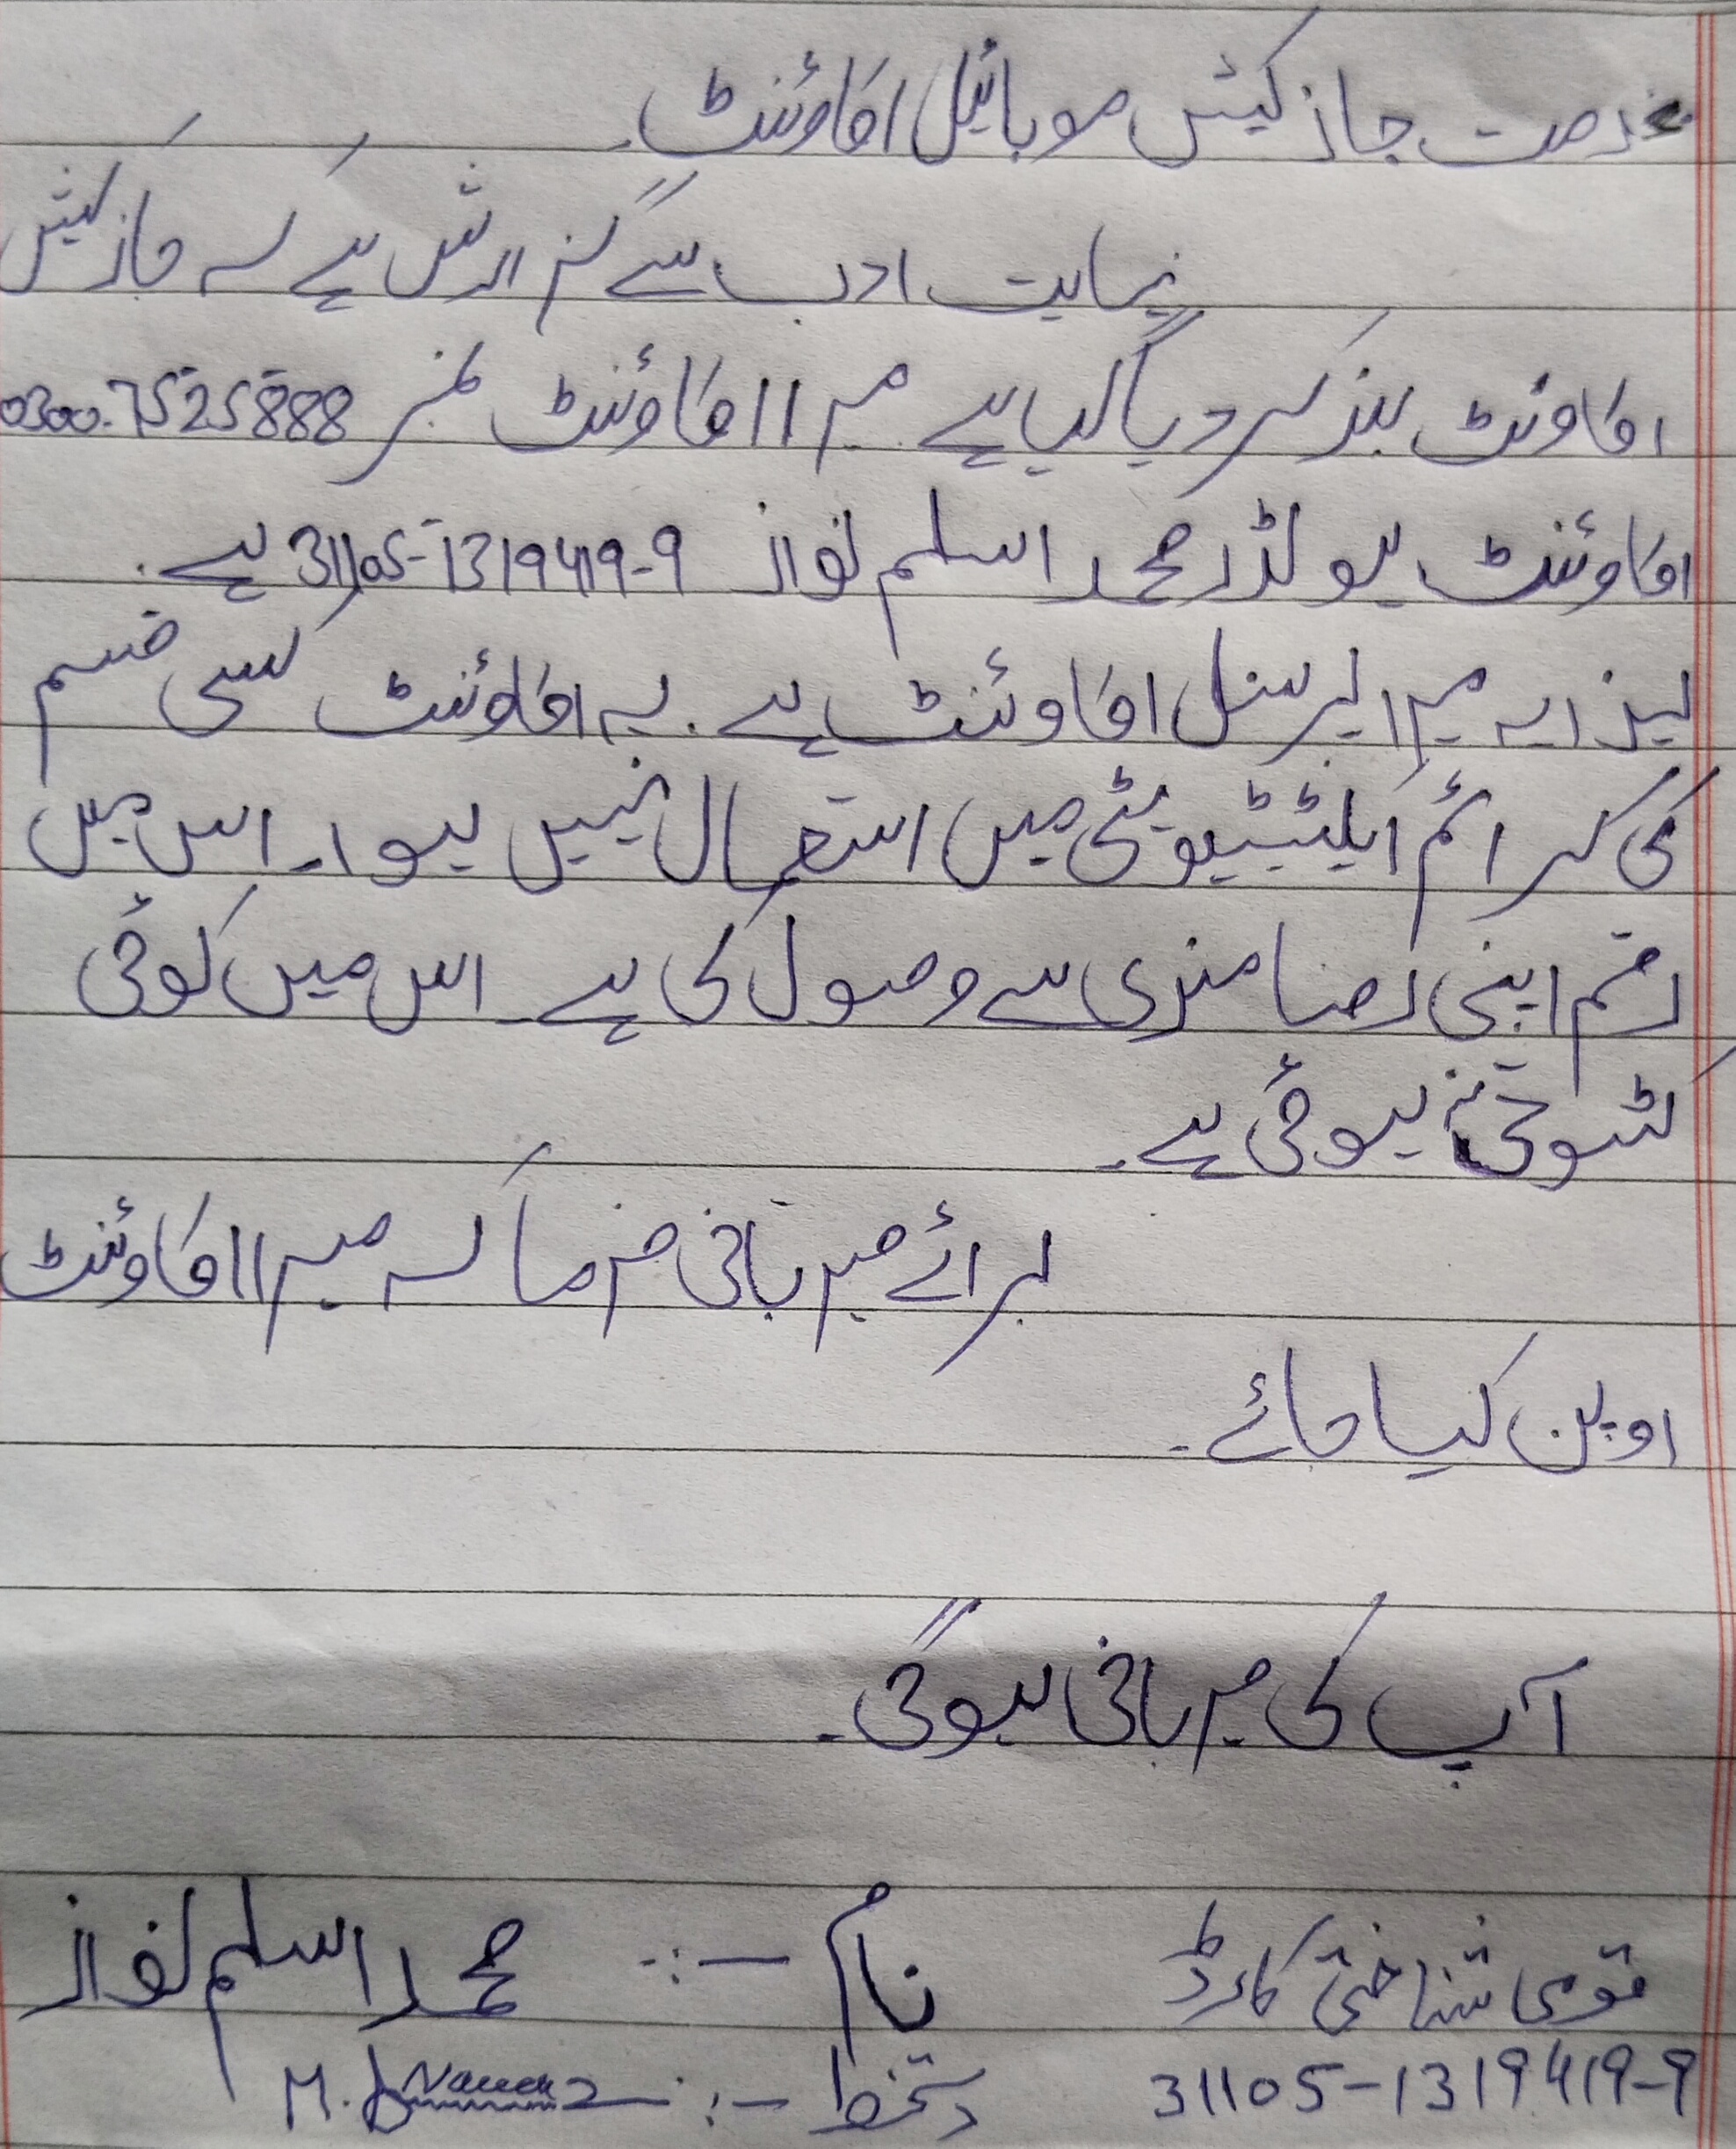 بخدمت جاز کیش موبائیل اکاؤئنٹ۔
نہایت ادب سے گزارش ہے کہ جاز کیش
اکاونٹ بند کر دیا گیا ہے میرا اکاوئنٹ نمبر 0300.7525888
اکاوئنٹ ہولڈر محمد اسلم نواز 31105-1319419-9 ہے۔
لہذا یہ میرا پرسنل اکاوئنٹ ہے۔ یہ اکاوئنٹ کسی قسم
کی کرائم ایکٹیویٹی میں استعمال نہیں ہوا۔ اس میں
رقم اپنی رضا مندی سے وصول کی ہے۔ اس میں کوئی
کٹوتی نہ ہوئی ہے۔
برائے مہربانی فرما کہ میرا اکاوئنٹ
اوپن کیا جائے۔
آپ کی مہربانی ہوگی۔
قومی شناختی کارڈ نام :- محمد اسلم نواز
31105-1319419-9 دستخط :- M. A Nawaz